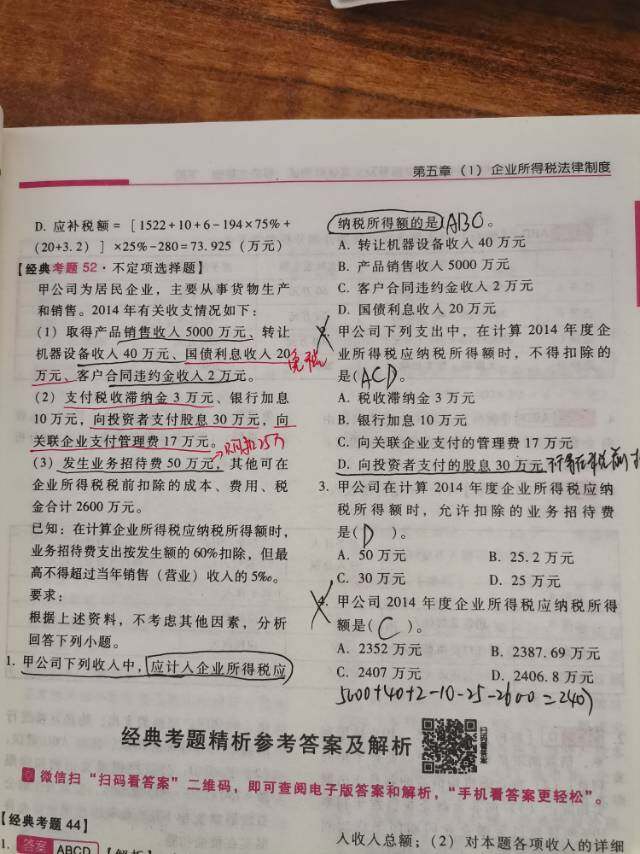 第五章（1）企业所得税法律制度
D. 应补税额 =［1522+10+6-194×75%+
(20+3.2)］×25%-280=73.925（万元）
【经典考题 52·不定项选择题】
甲公司为居民企业，主要从事货物生产
和销售。2014 年有关收支情况如下：
(1) 取得产品销售收入 5000 万元、转让
机器设备收入 40 万元、国债利息收入 20
免税
万元、客户合同违约金收入 2 万元。
(2) 支付税收滞纳金 3 万元、银行加息
10 万元，向投资者支付股息 30 万元，向
关联企业支付管理费 17 万元。
只能扣25万
(3) 发生业务招待费 50 万元，其他可在
企业所得税税前扣除的成本、费用、税
金合计 2600 万元。
已知：在计算企业所得税应纳税所得额时，
业务招待费支出按发生额的 60%扣除，但最
高不得超过当年销售（营业）收入的 5‰。
要求：
根据上述资料，不考虑其他因素，分析
回答下列小题。
1. 甲公司下列收入中，应计入企业所得税应
纳税所得额的是( ABC 。
A. 转让机器设备收入 40 万元
B. 产品销售收入 5000 万元
C. 客户合同违约金收入 2 万元
D. 国债利息收入 20 万元
甲公司下列支出中，在计算 2014 年度企
业所得税应纳税所得额时，不得扣除的
是( ACD )。
A. 税收滞纳金 3 万元
B. 银行加息 10 万元
C. 向关联企业支付的管理费 17 万元
D. 向投资者支付的股息 30 万元
3. 甲公司在计算 2014 年度企业所得税应纳
税所得额时，允许扣除的业务招待费
是( D )。
A. 50 万元 B. 25.2 万元
C. 30 万元 D. 25 万元
甲公司 2014 年度企业所得税应纳税所得
额是( C )。
A. 2352 万元 B. 2387.69 万元
C. 2407 万元 D. 2406.8 万元
5000+40+2-10-25-2600=2407
经典考题精析参考答案及解析
扫码看答案
微信扫“扫码看答案”二维码，即可查阅电子版答案和解析，“手机看答案更轻松”。
【经典考题 44】
1. 答案 ABCD 【解析】
入收入总额；(2) 对本题各项收入的详细